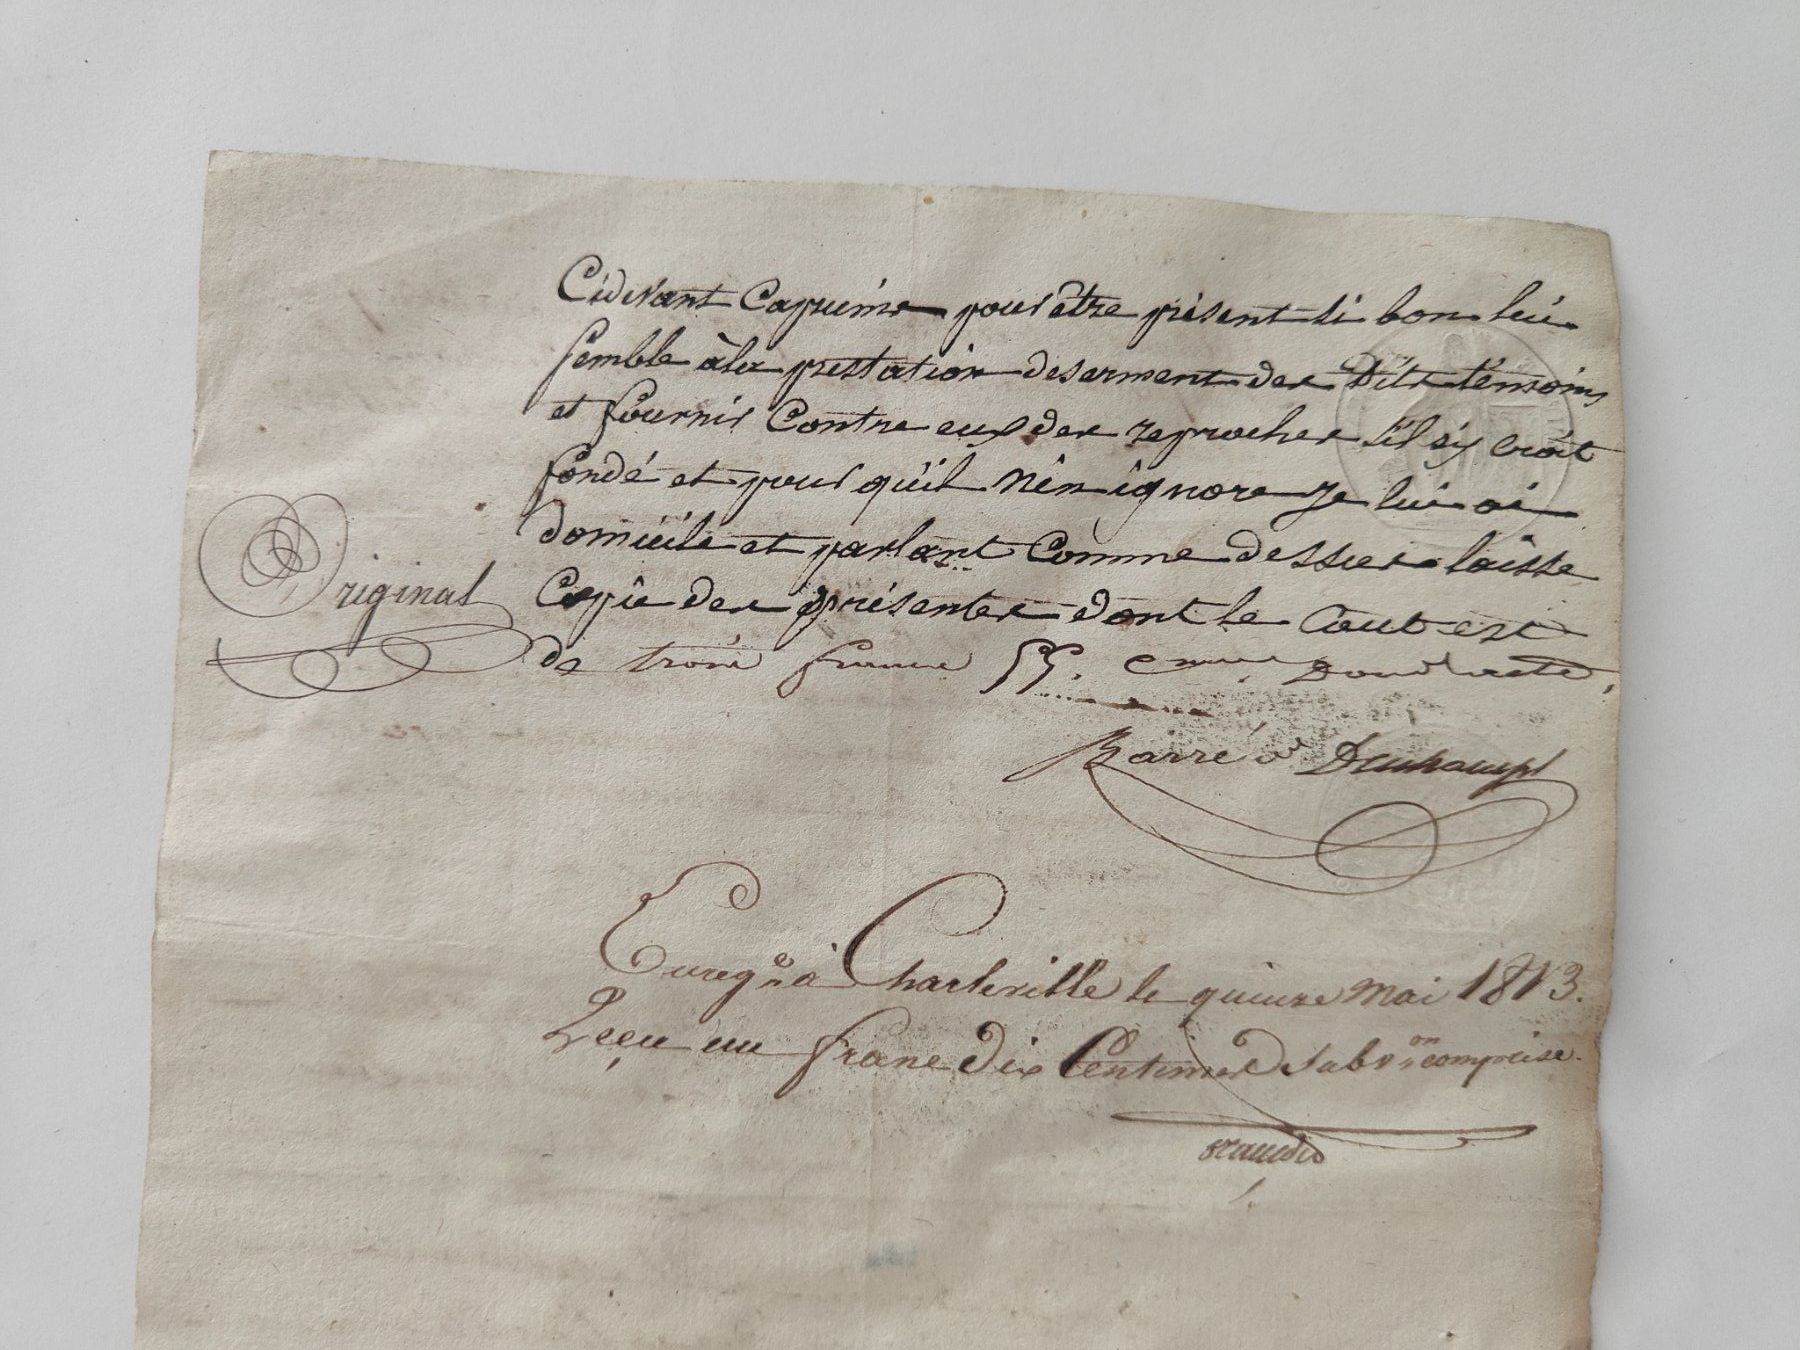 Cidevant Capucins pour être présent si bon lui
semble à la prestation de serment des Dits témoins
et fournir Contre eux des reproches s'il s'y croit
fondé et pour qu'il n'en ignore Je lui ai
domicile et parlant Comme dessus laisse
Original
Copie des présentes dont le Cout est
de trois francs 55. Dont acte,
Barré Deschamps
Enreg.é à Charleville le quinze Mai 1813.
Reçu un franc dix Centimes Subv.on comprise.